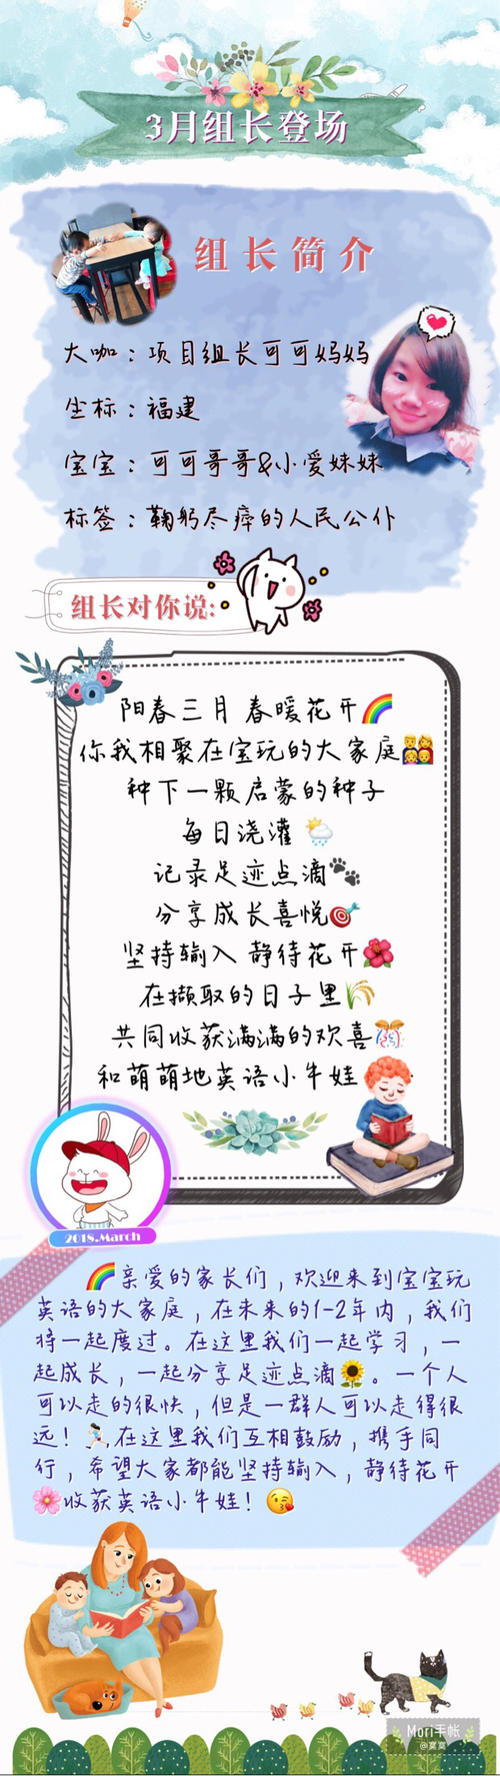 3月组长登场
组长简介
大咖：项目组长可可妈妈
坐标：福建
宝宝：可可哥哥&小爱妹妹
标签：鞠躬尽瘁的人民公仆
组长对你说:
阳春三月 春暖花开🌈
你我相聚在宝玩的大家庭👨‍👩‍👧‍👦
种下一颗启蒙的种子
每日浇灌🌦
记录足迹点滴🐾
分享成长喜悦🎯
坚持输入 静待花开🌺
在撷取的日子里🌾
共同收获满满的欢喜🎊
和萌萌地英语小牛娃
2018.March
🌈亲爱的家长们，欢迎来到宝宝玩
英语的大家庭，在未来的1-2年内，我们
将一起度过。在这里我们一起学习，一
起成长，一起分享足迹点滴🌻。一个人
可以走的很快，但是一群人可以走得很
远！🏃🏻在这里我们互相鼓励，携手同
行，希望大家都能坚持输入，静待花开
🌸收获英语小牛娃！😘
Mori手帐
@窝窝